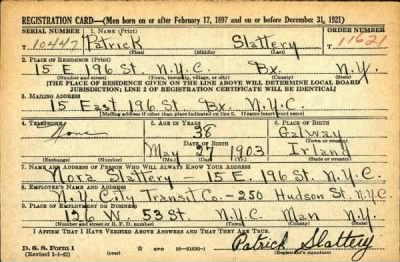 REGISTRATION CARD—(Men born on or after February 17, 1897 and on or before December 31, 1921)
SERIAL NUMBER 1. NAME (Print) ORDER NUMBER
T 10447 Patrick Slattery 11621
(First) (Middle) (Last)
2. PLACE OF RESIDENCE (Print)
15 E 196 St. N.Y.C. Bx. N.Y.
(Number and street) (Town, township, village, or city) (County) (State)
[THE PLACE OF RESIDENCE GIVEN ON THE LINE ABOVE WILL DETERMINE LOCAL BOARD
JURISDICTION; LINE 2 OF REGISTRATION CERTIFICATE WILL BE IDENTICAL]
3. MAILING ADDRESS
15 East 196 St. Bx. N.Y.C.
[Mailing address if other than place indicated on line 2. If same insert word same]
4. TELEPHONE 5. AGE IN YEARS 6. PLACE OF BIRTH
None 38 Galway
DATE OF BIRTH (Town or county)
May 27 1903 Irland
(Exchange) (Number) (Mo.) (Day) (Yr.) (State or country)
7. NAME AND ADDRESS OF PERSON WHO WILL ALWAYS KNOW YOUR ADDRESS
Nora Slattery 15 E. 196 St. N.Y.C.
8. EMPLOYER'S NAME AND ADDRESS
N.Y. City Transit Co- 250 Hudson St. N.Y.C.
9. PLACE OF EMPLOYMENT OR BUSINESS
126 W. 53 St. N.Y.C. Man N.Y.
(Number and street or R. F. D. number) (Town) (County) (State)
I AFFIRM THAT I HAVE VERIFIED ABOVE ANSWERS AND THAT THEY ARE TRUE.
D. S. S. Form 1
(Revised 1-1-42) (over) GPO 16—21630-1 Patrick Slattery
(Registrant's signature)